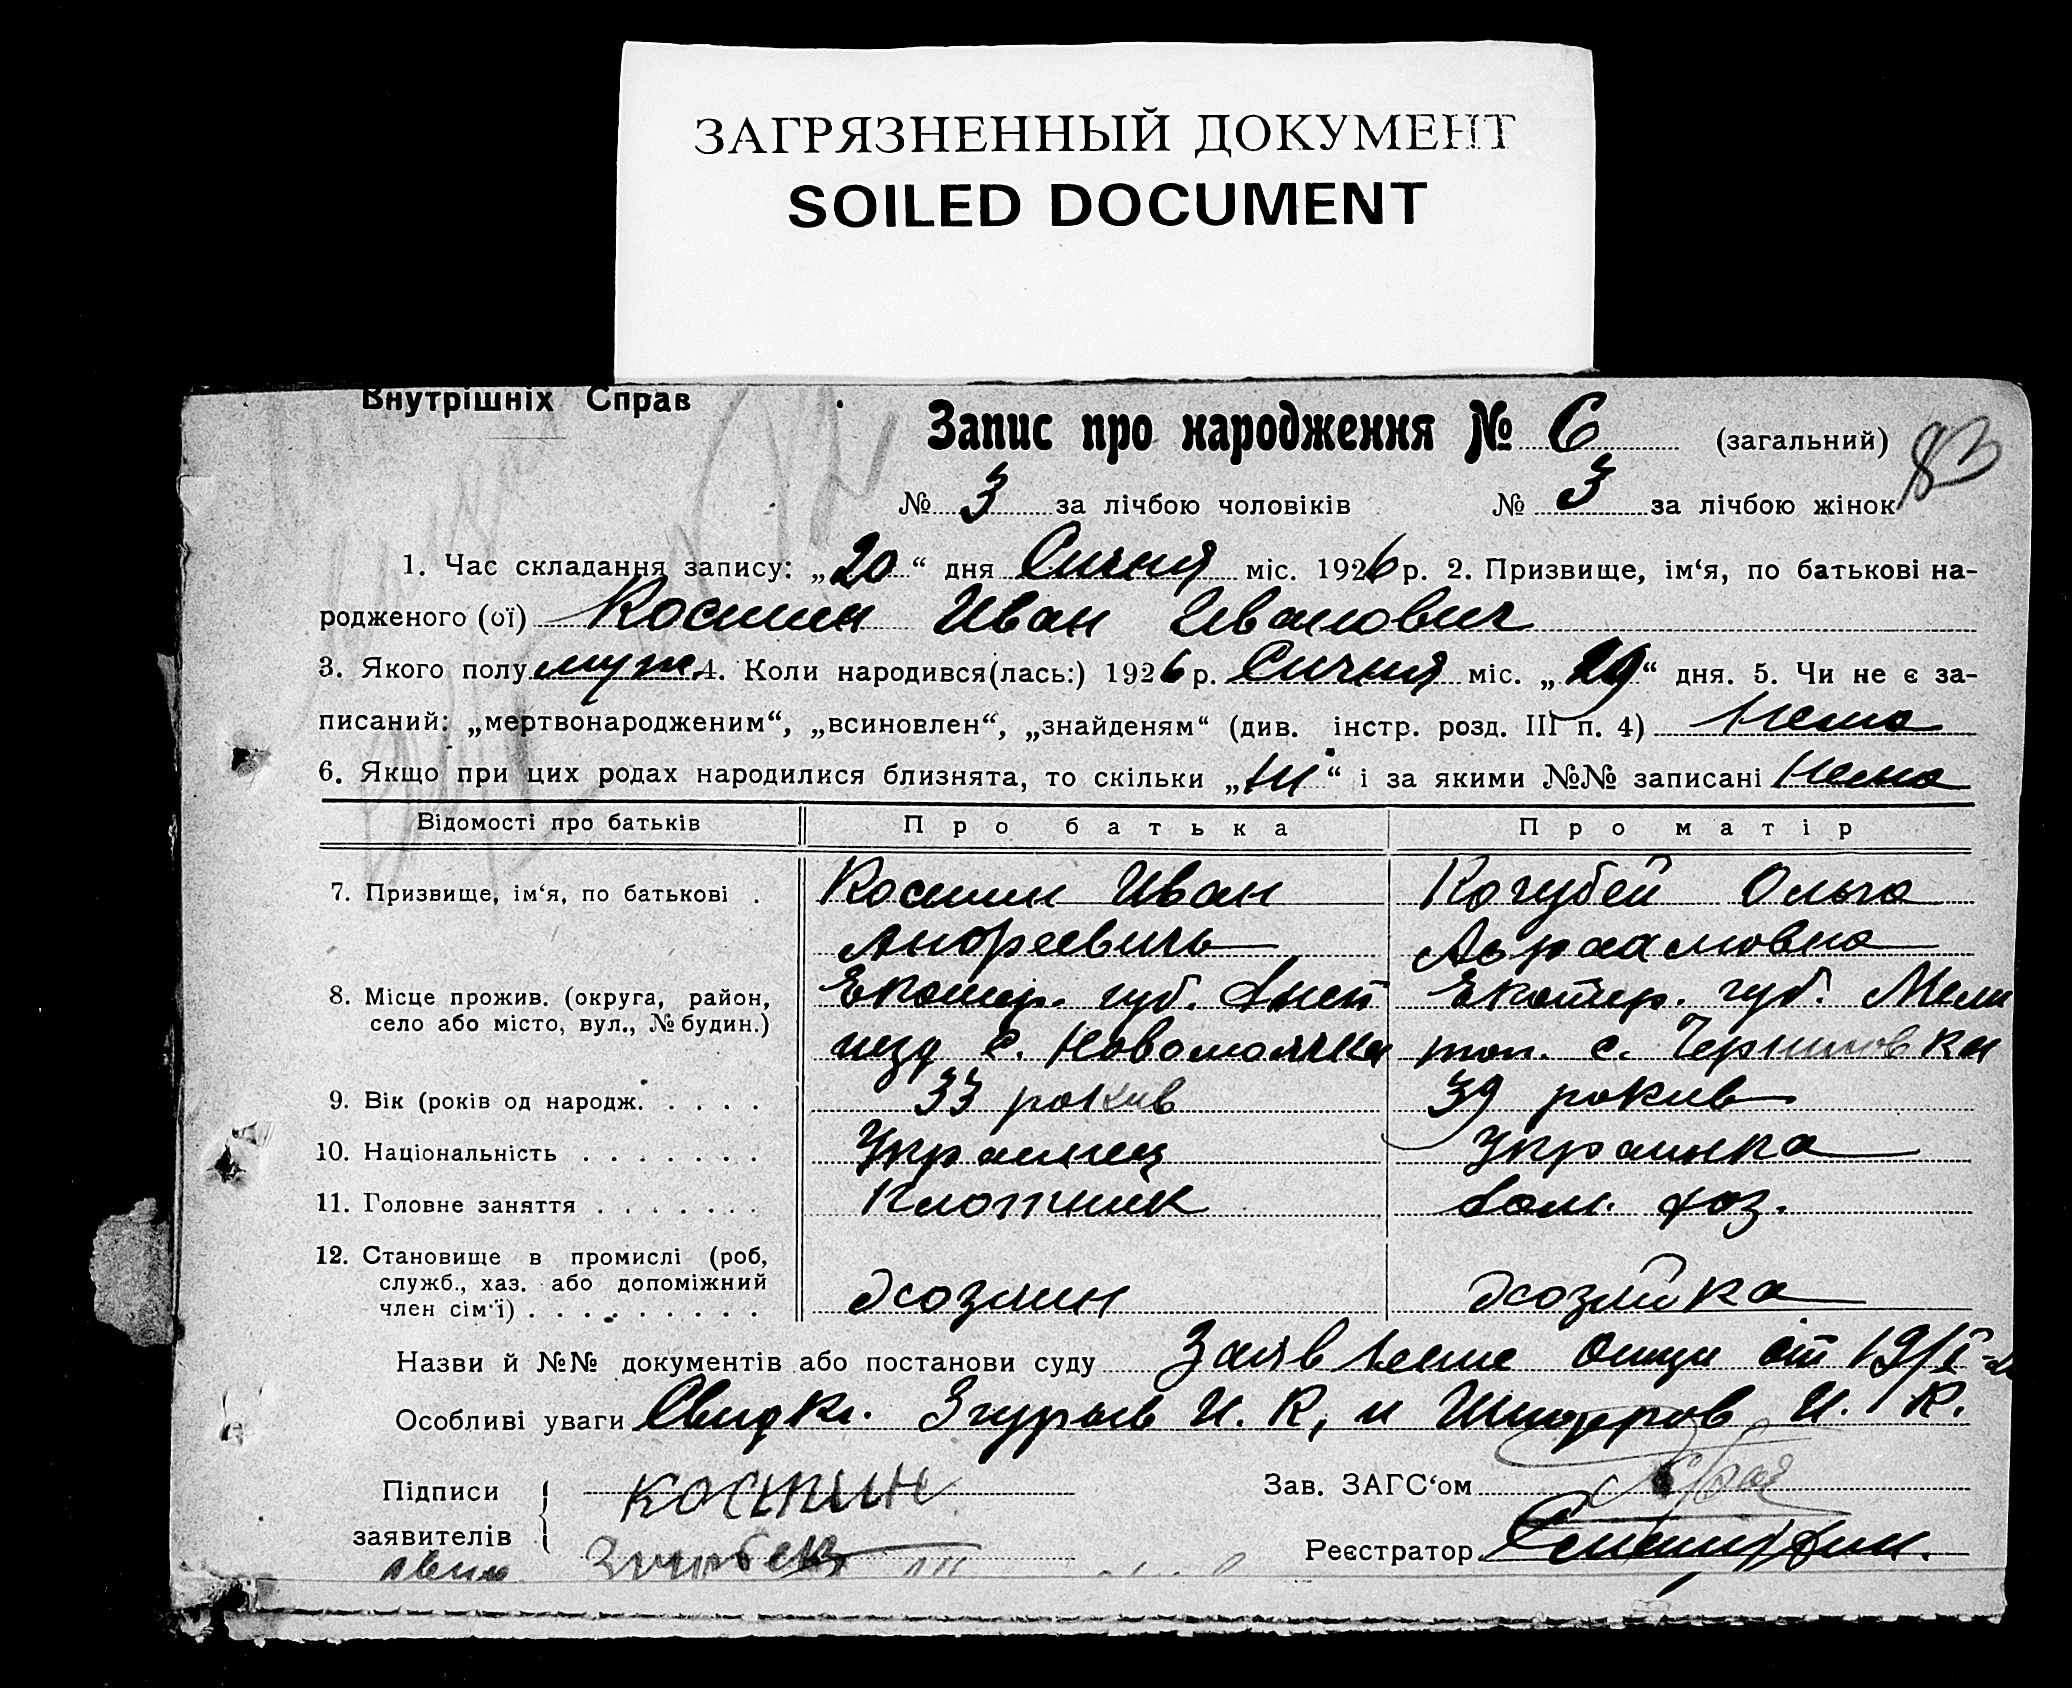 ЗАГРЯЗНЕННЫЙ ДОКУМЕНТ
SOILED DOCUMENT
Внутрішніх Справ
Запис про народження № 6 (загальний) 83
№ 3 за лічбою чоловіків № 3 за лічбою жінок
1. Час складання запису: „20“ дня Сичня міс. 1926 р. 2. Призвище, ім‘я, по батькові на-
родженого (ої) Костин Иван Иванович
3. Якого полу муж 4. Коли народився(лась:) 1926 р. Сичня міс. „ “ дня. 5. Чи не є за-
писаний: „мертвонародженим“, „всиновлен“, „знайденям“ (див. інстр. розд. III п. 4) Нема
6. Якщо при цих родах народилися близнята, то скільки „ни“ і за якими №№ записані Нема
Відомості про батьків Про батька Про матір
7. Призвище, ім‘я, по батькові . Костин Иван Кочубей Ольга
Андреевичь Авраамовна
8. Місце прожив. (округа, район, Екатер. губ. Екатер. губ. Мели
село або місто, вул., № будин.) с. Новомаячка топ. с. Черниговки
9. Вік (років од народж. . . . . 33 рокив 39 рокив
10. Національність . . . . . . . Украинец Украинка
11. Головне заняття . . . . . . . Плотник Дом. хоз.
12. Становище в промислі (роб,
служб., хаз. або допоміжний
член сім‘ї) . . . . . . . . . Хозяин Хозяйка
Назви й №№ документів або постанови суду Заявление отци от 19/I
Особливі уваги Свидки. И. К, и И. К.
Підписи Костин Зав. ЗАГС‘ом
заявителів Реєстратор